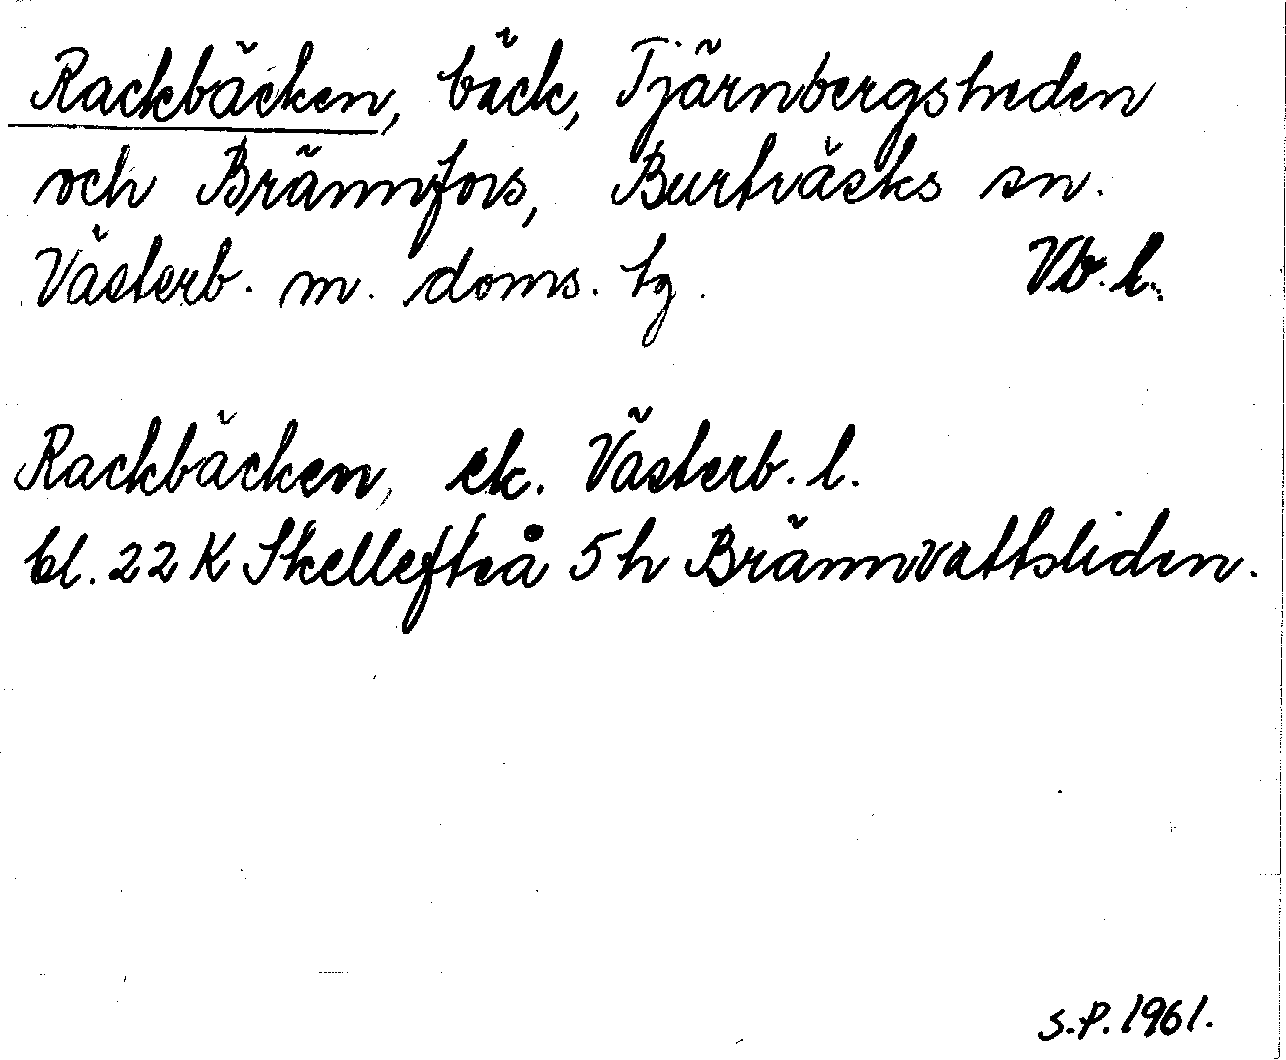 Rackbäcken, bäck, Tjärnbergsheden
och Brännfors, Burträsks sn.
Västerb. m. doms. tg. Vb. l.
Rackbäcken, ek. Västerb. l.
bl. 22 K Skellefteå 5 h Brännvattsliden.
S.P. 1961.